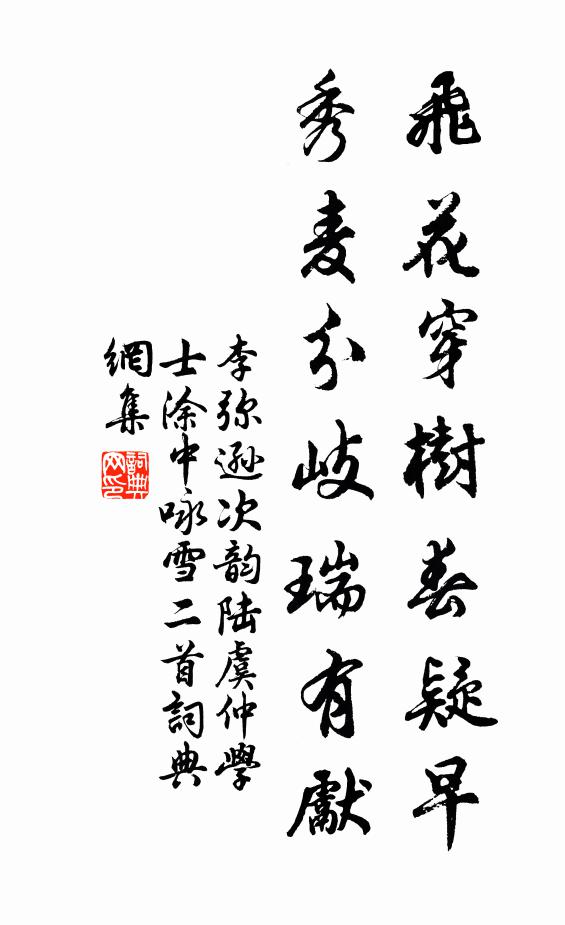 飛花穿樹春疑早
秀麦分岐瑞有獻
李弥遜次韵陸虞仲學
士涂中咏雪二首詞典
網集
詞典
网印